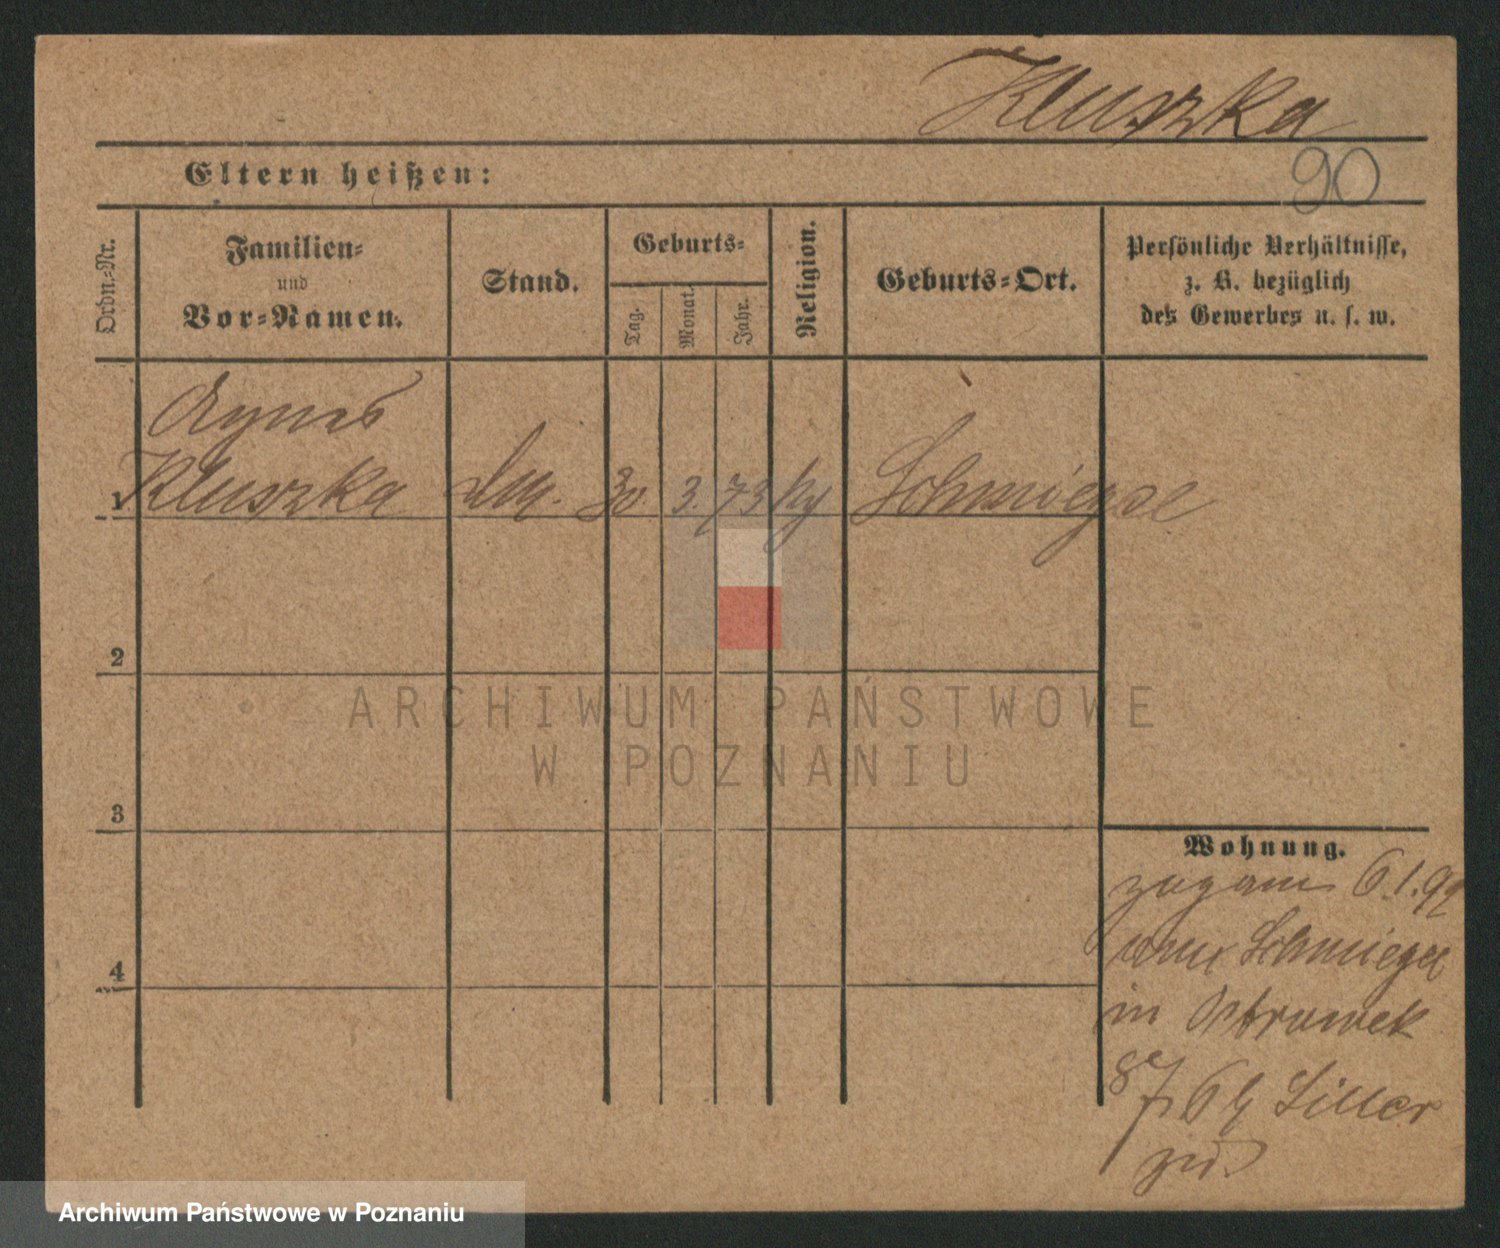 Kluszka
Eltern heißen:
90
Ordn.-Nr.
Familien-
und
Vor-Namen.
Stand.
Geburts-
Tag.
Monat.
Jahr.
Religion.
Geburts-Ort.
Persönliche Verhältnisse,
z. B. bezüglich
des Gewerbes u. s. w.
Agnes
1 Kluszka 30 3. 73 Schmiegel
2
3
4
Wohnung.
6.1.92
Schmiegel
in Ostrowek
ARCHIWUM PAŃSTWOWE
W POZNANIU
Archiwum Państwowe w Poznaniu